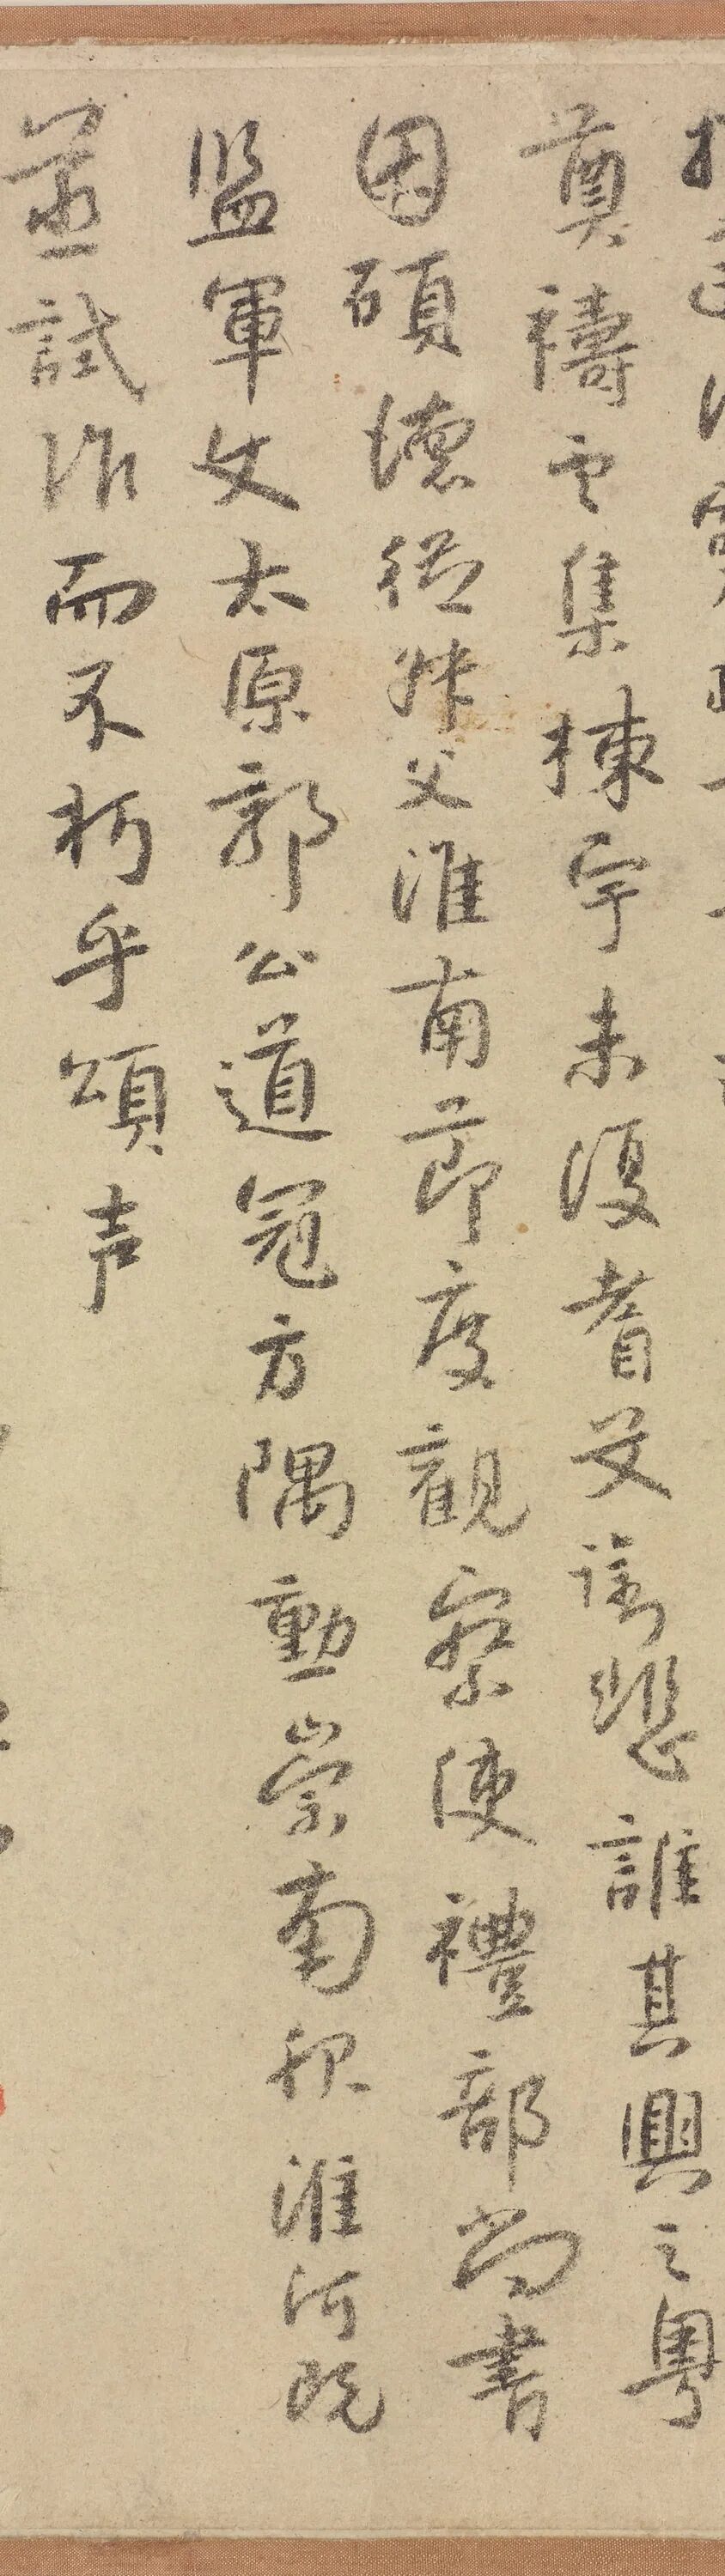 奠禱云集棟宇未復耆艾謠悲誰其興之粵
因碩德從姊父淮南節度觀察使禮部尚書
監軍使太原郭公道冠方隅勳崇南服淮河既
蒸試作而不朽乎頌声